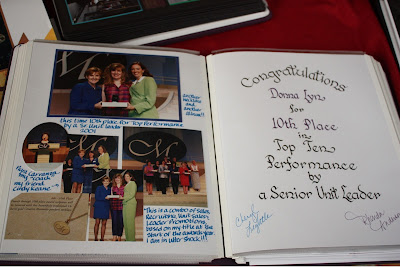 another
necklace
and
another
album!!
this time 10th place for Top Performance
by a Sr Unit Leader
2001
my "coach"
my friend
Cindy Keane
This is a combo of Sales,
Recruiting, and Unit Sales
Leader Promotions,
based on my title at the
start of the awards year.
I am in utter shock!!!
Congratulations
Donna Lyn
for
10th Place
in
Top Ten
Performance
by
a Senior Unit Leader